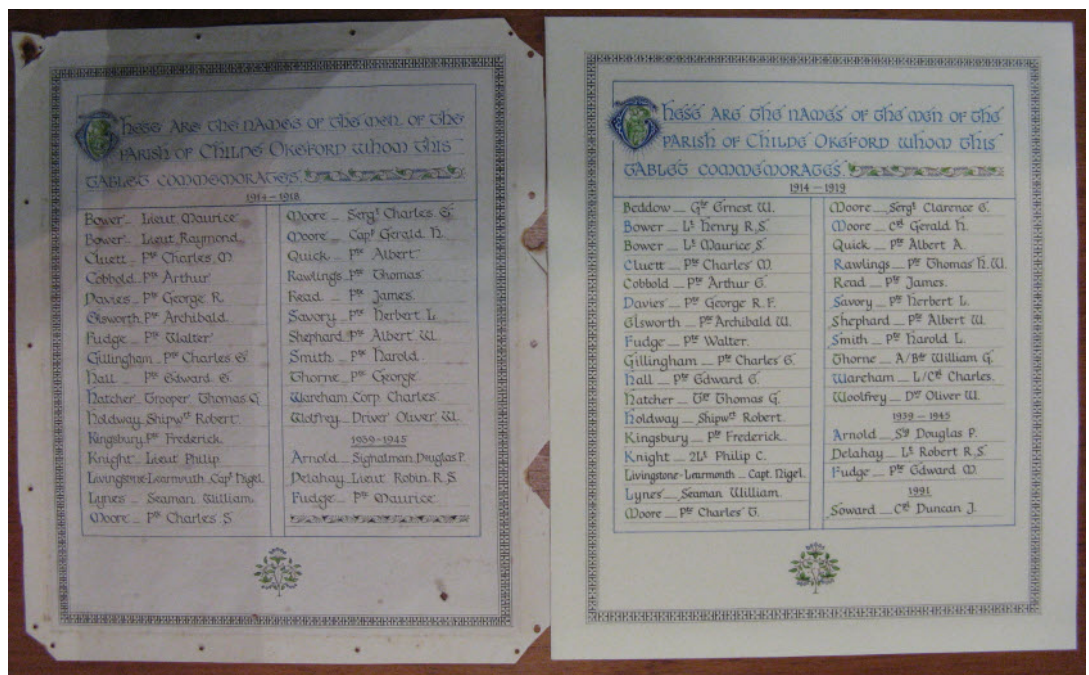 These are the names of the men of the
Parish of Childe Okeford whom this
tablet commemorates.
1914 – 1918
Bower – Lieut Maurice
Bower – Lieut Raymond
Cluett – Pte Charles M
Cobbold – Pte Arthur
Davies – Pte George R.
Elsworth – Pte Archibald
Fudge – Pte Walter
Gillingham – Pte Charles E
Hall – Pte Edward E.
Hatcher – Trooper Thomas G
Holdway – Shipwrt Robert
Kingsbury – Pte Frederick
Knight – Lieut Philip
Livingstone-Learmouth – Capt Nigel
Lynes – Seaman William
Moore – Pte Charles S
Moore – Sergt Charles E
Moore – Capt Gerald H
Quick – Pte Albert
Rawlings – Pte Thomas
Read – Pte James.
Savory – Pte Herbert L
Shephard – Pte Albert W.
Smith – Pte Harold.
Thorne – Pte George
Wareham Corp Charles
Wolfrey – Driver Oliver W.
1939 - 1945
Arnold – Signalman Douglas P.
Delahay – Lieut Robin R S
Fudge – Pte Maurice
These are the names of the men of the
Parish of Childe Okeford whom this
tablet commemorates.
1914 – 1919
Beddow – Gnr Ernest W.
Bower – Lt Henry R.S.
Bower – Lt Maurice S.
Cluett – Pte Charles M.
Cobbold – Pte Arthur E.
Davies – Pte George R. F.
Elsworth – Pte Archibald W.
Fudge – Pte Walter.
Gillingham – Pte Charles E.
Hall – Pte Edward E.
Hatcher – Thomas G.
Holdway – Shipwrt Robert.
Kingsbury – Pte Frederick.
Knight – 2Lt Philip C.
Livingstone-Learmonth – Capt. Nigel.
Lynes – Seaman William.
Moore – Pte Charles T.
Moore – Sergt Clarence E.
Moore – Cpl Gerald H.
Quick – Pte Albert A.
Rawlings – Pte Thomas H. W.
Read – Pte James.
Savory – Pte Herbert L.
Shephard – Pte Albert W.
Smith – Pte Harold L.
Thorne – A/Bdr William G.
Wareham – L/Cpl Charles.
Woolfrey – Dvr Oliver W.
1939 – 1945
Arnold – Douglas P.
Delahay – Lt Robert R S
Fudge – Pte Edward M.
1991
Soward – Cpl Duncan J.